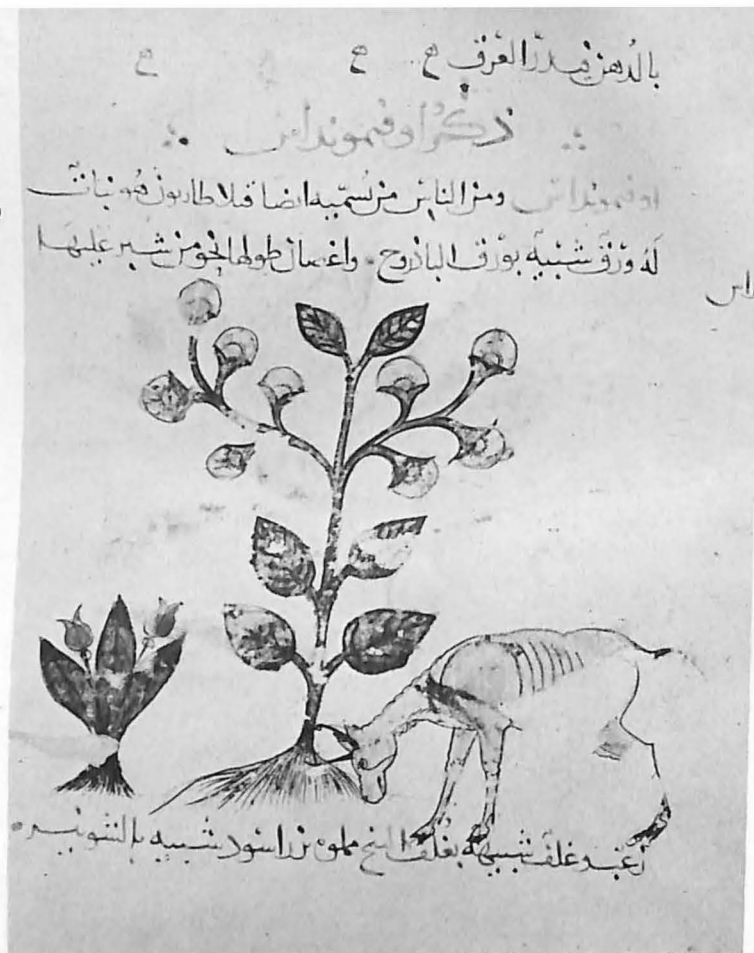 بالدهن فيدر العرق ع ع ع
ذكر اوقيمونداس
اوقيمونداس ومن الناس من يسميه ايضا فيلاطاريون هو نبات
له ورق شبيه بورق الباذروج واغصان طولها نحو من شبر عليها
داس
زغب وغلف شبيهة بغلف البنج مملوه بزرا اسود شبيه بالشونيز